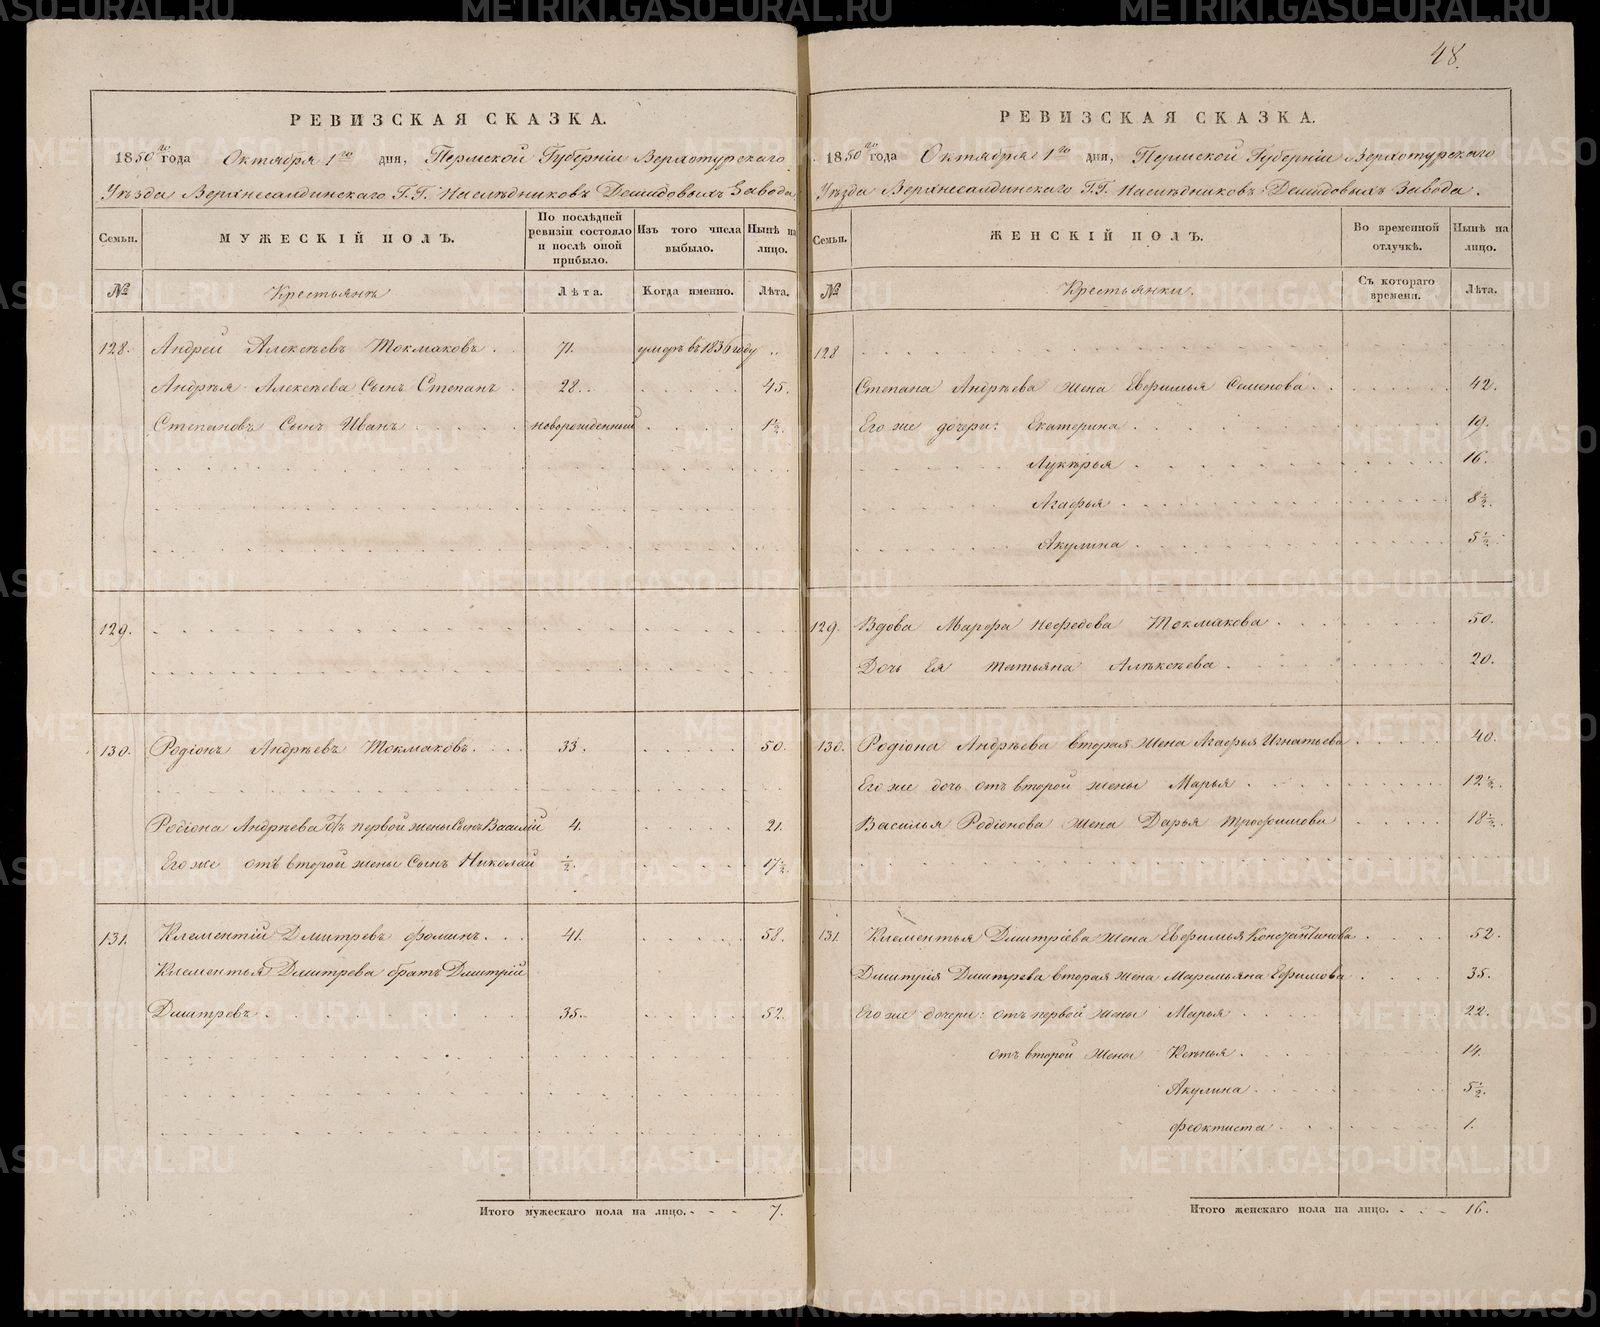 48.
РЕВИЗСКАЯ СКАЗКА.
1850го года Октября 1го дня, Пермской Губерніи Верхотурскаго
Уѣзда Верхнесалдинскаго Г.Г. Наслѣдниковъ Демидовыхъ Завода
Семьи.
МУЖЕСКІЙ ПОЛЪ.
По послѣдней ревизіи состояло и послѣ оной прибыло.
Изъ того числа выбыло.
Нынѣ на лицо.
№ Крестьянъ Лѣта. Когда именно. Лѣта.
128. Андрей Алексѣевъ Токмаковъ. 71. умеръ въ 1836 году
Андрѣя Алексѣева Сынъ Степанъ 28. 45.
Степановъ Сынъ Иванъ новорожденный 1½.
129.
130. Родіонъ Андрѣевъ Токмаковъ. 33. 50.
Родіона Андрѣева Отъ первой жены Сынъ Василій 4. 21.
Его же отъ второй жены Сынъ Николай ½. 17½.
131. Клементій Дмитревъ Фоминъ. 41. 58.
Клементья Дмитрева братъ Дмитрій
Дмитревъ. 35. 52.
Итого мужескаго пола на лицо. 7.
РЕВИЗСКАЯ СКАЗКА.
1850го года Октября 1го дня, Пермской Губерніи Верхотурскаго
Уѣзда Верхнесалдинскаго Г.Г. Наслѣдниковъ Демидовыхъ Завода.
Семьи.
ЖЕНСКІЙ ПОЛЪ.
Во временной отлучкѣ.
Нынѣ на лицо.
№ Крестьянки. Съ котораго времени. Лѣта.
128
Степана Андрѣева жена Евфимья Семенова. 42.
Его же дочери: Екатерина 19.
Лукѣрья 16.
Агафья 8½.
Акулина 5½.
129. Вдова Марфа Нефедова Токмакова 50.
Дочь Ея Татьяна Алѣксѣева. 20.
130. Родіона Андрѣева вторая жена Агафья Игнатьева 40.
Его же дочь отъ второй жены Марья 12½.
Василья Родіонова жена Дарья Трофимова 18½.
131. Клементья Дмитріева жена Евфимья Константинова 52.
Дмитрія Дмитрева вторая жена Маремьяна Ефимова 35.
Его же дочери: отъ первой жены Марья 22.
отъ второй жены Ксѣнья. 14.
Акулина 5½.
Феоктиста 1.
Итого женскаго пола на лицо. 16.
METRIKI.GASO-URAL.RU